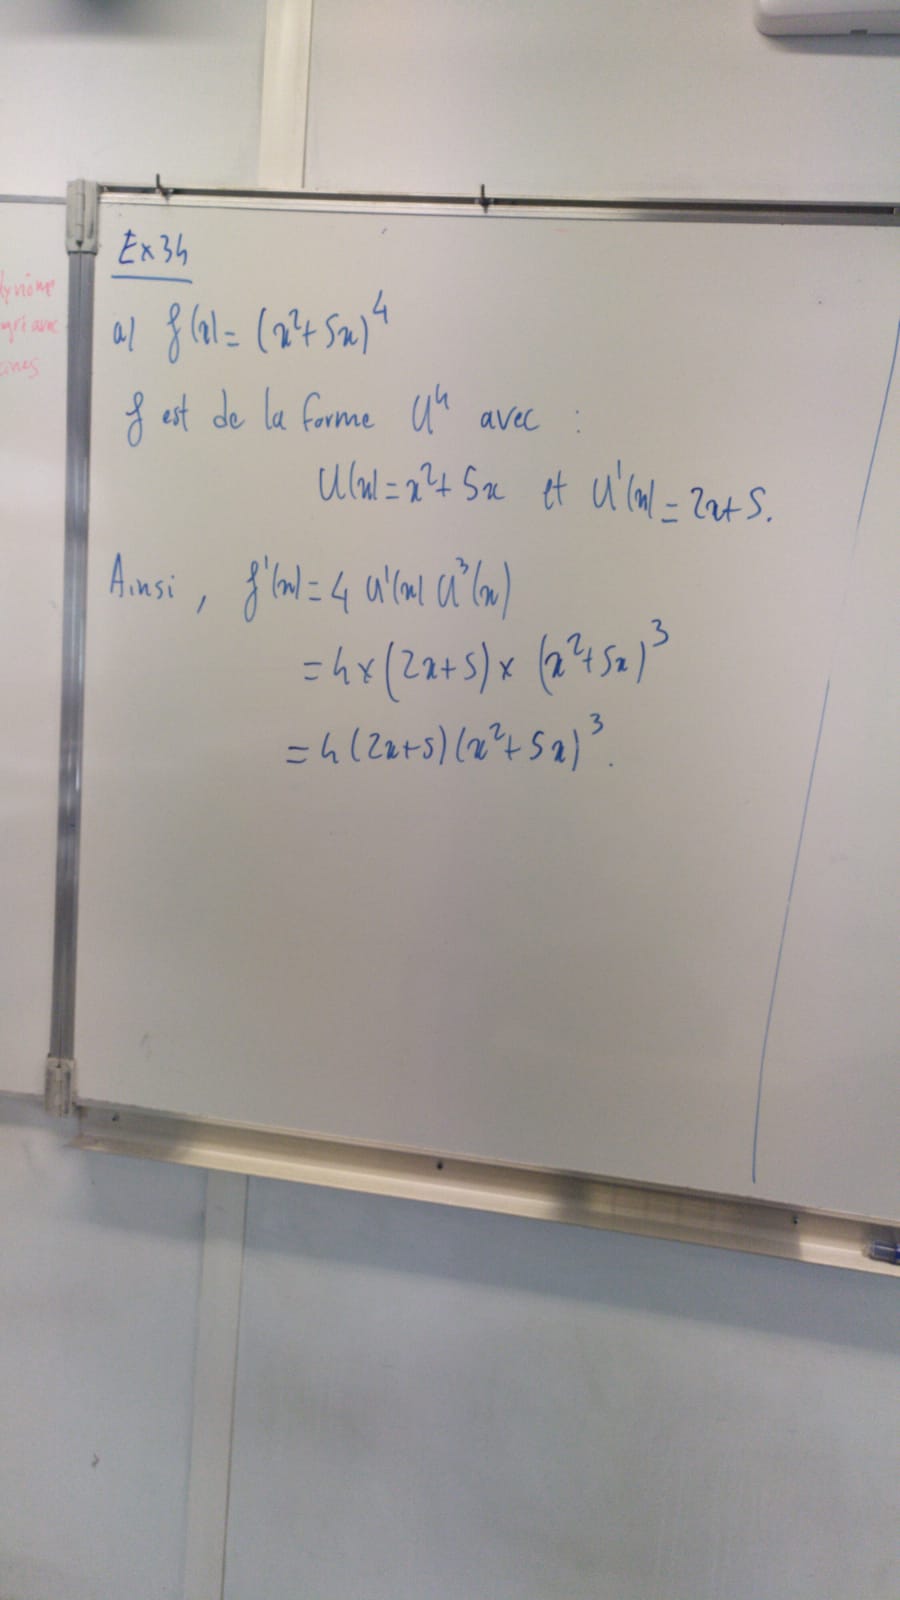 Ex 34
a) f(x) = (x²+5x)⁴
f est de la forme U⁴ avec :
U(x) = x²+5x et U'(x) = 2x+5.
Ainsi, f'(x) = 4 U'(x) U³(x)
= 4 × (2x+5) × (x²+5x)³
= 4 (2x+5) (x²+5x)³.